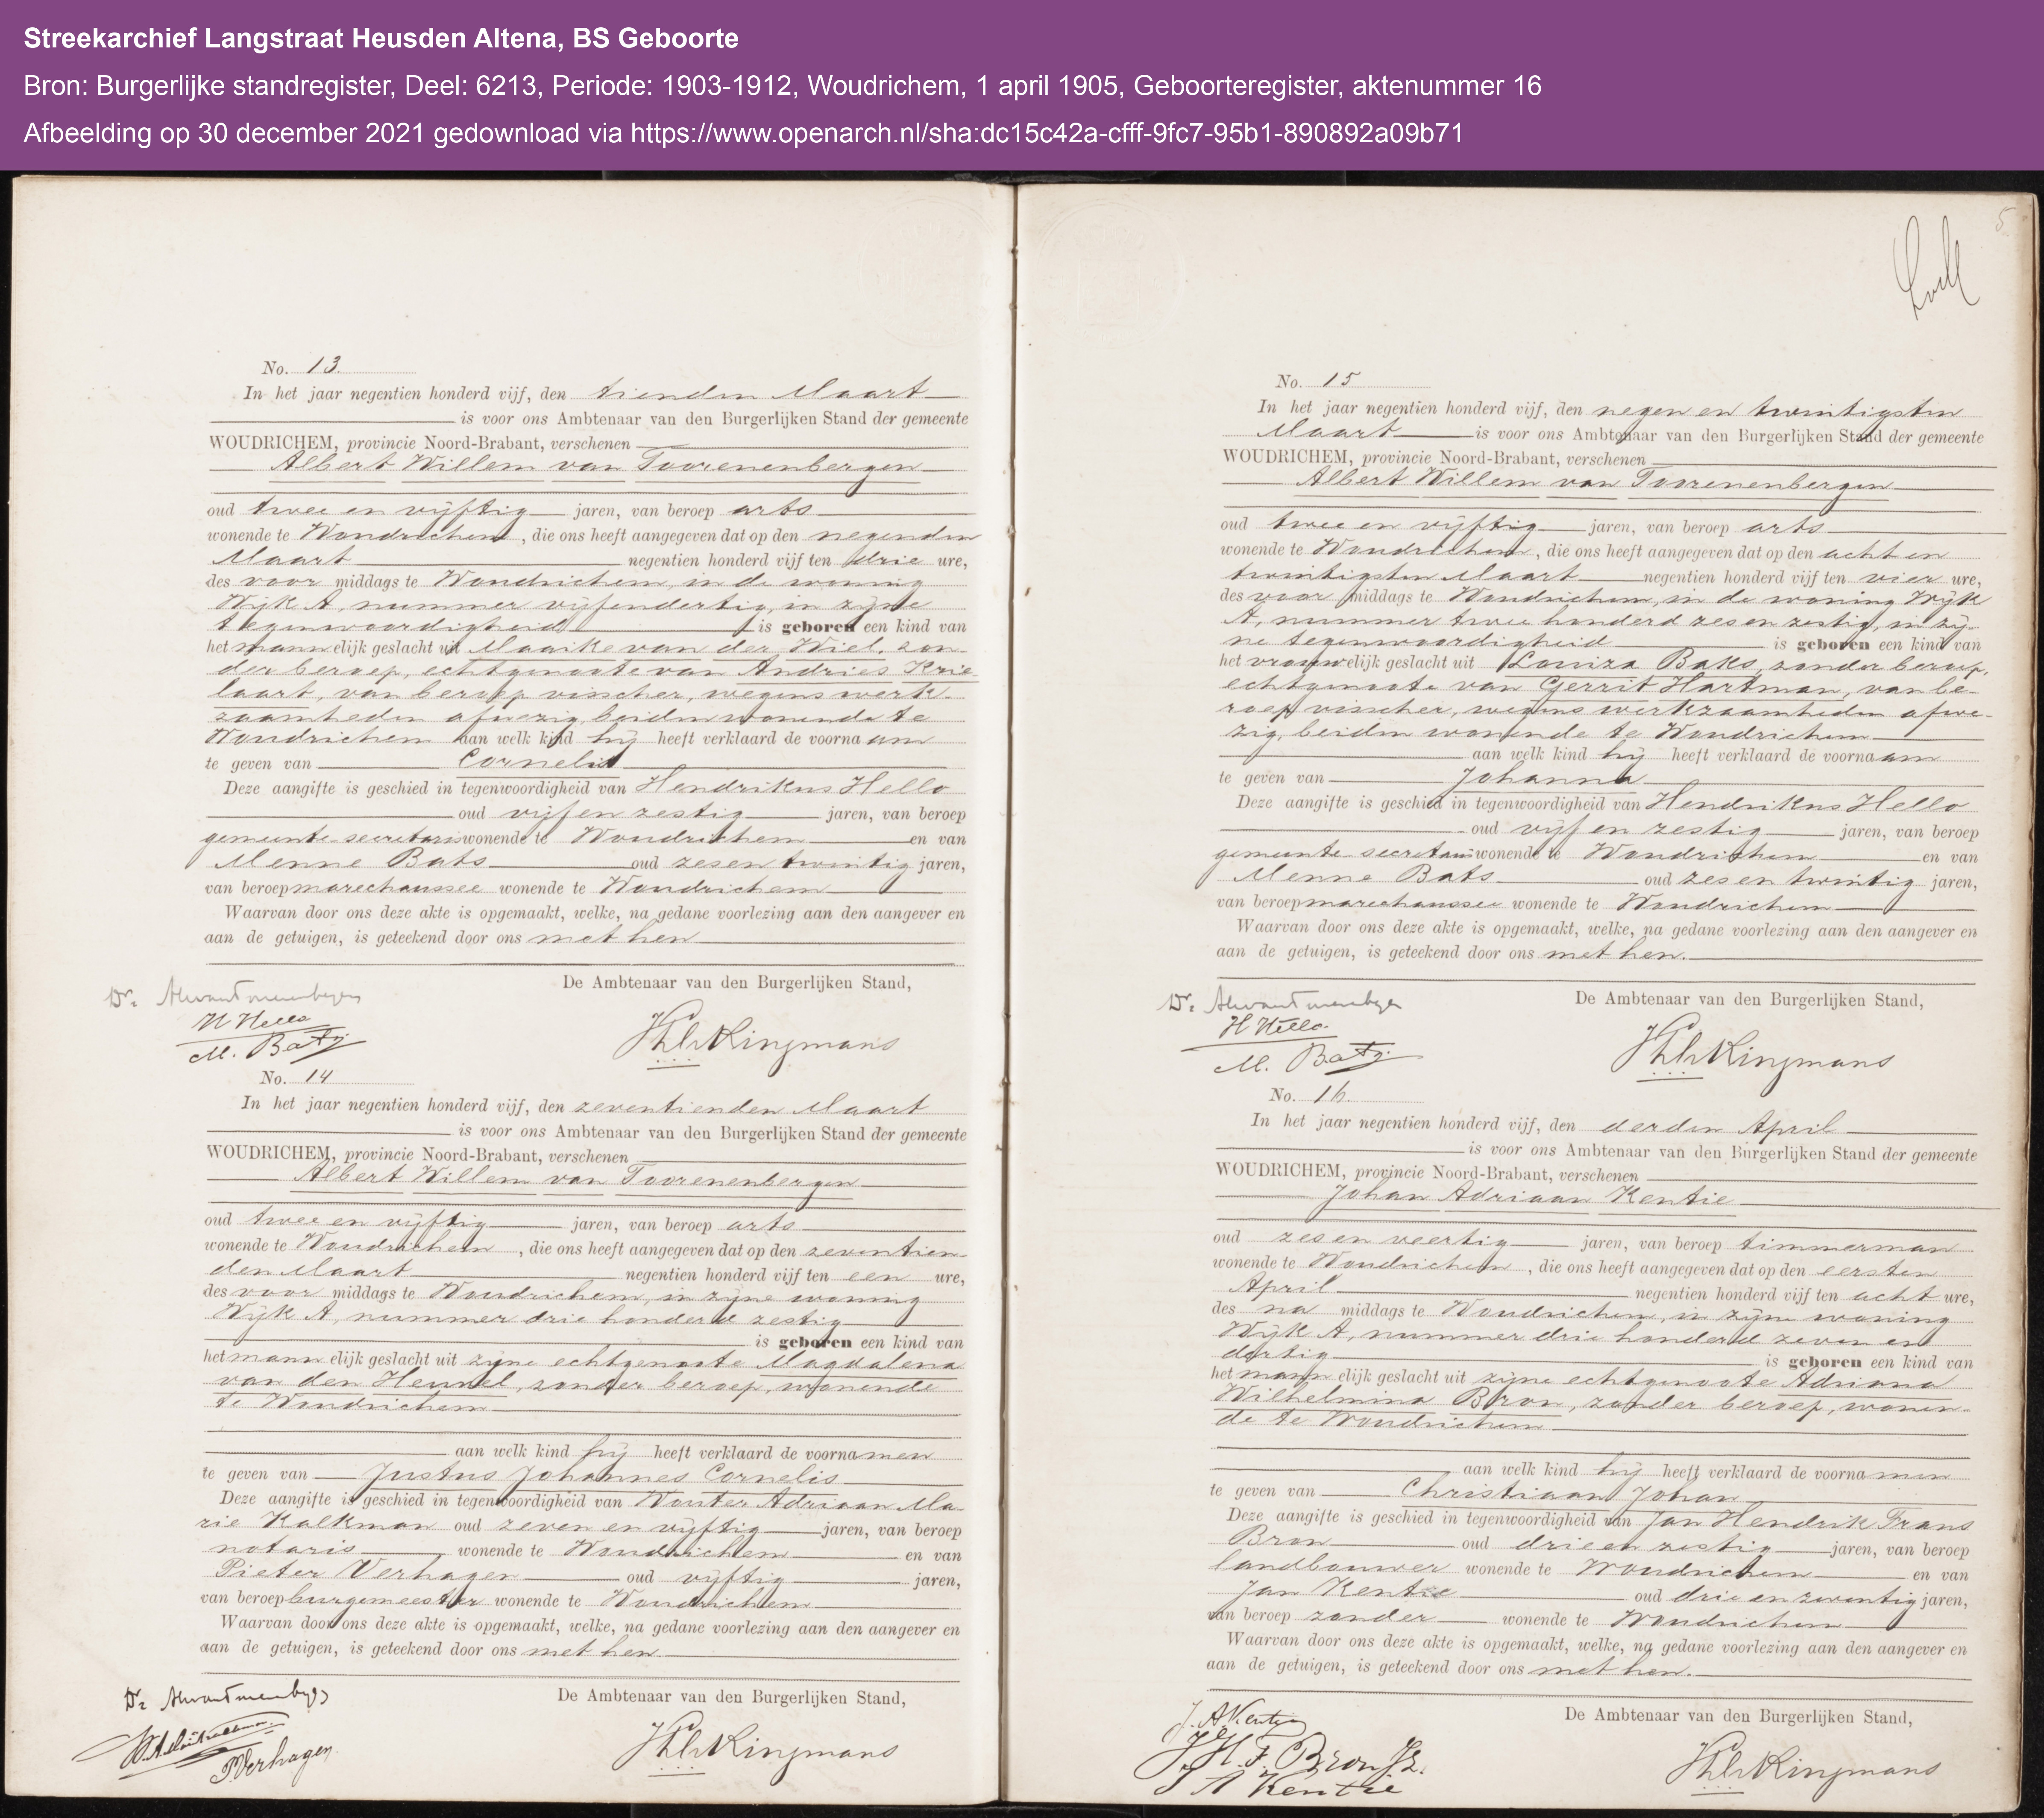 Streekarchief Langstraat Heusden Altena, BS Geboorte
Bron: Burgerlijke standregister, Deel: 6213, Periode: 1903-1912, Woudrichem, 1 april 1905, Geboorteregister, aktenummer 16
Afbeelding op 30 december 2021 gedownload via https://www.openarch.nl/sha:dc15c42a-cfff-9fc7-95b1-890892a09b71
No. 13
In het jaar negentien honderd vijf, den tienden Maart
is voor ons Ambtenaar van den Burgerlijken Stand der gemeente
WOUDRICHEM, provincie Noord-Brabant, verschenen
Albert Willem van Toorenenbergen
oud twee en vijftig jaren, van beroep arts
wonende te Woudrichem, die ons heeft aangegeven dat op den negenden
Maart negentien honderd vijf ten drie ure,
des voor middags te Woudrichem, in de woning
Wijk A, nummer vijfendertig, in zijne
tegenwoordigheid is geboren een kind van
het mannelijk geslacht uit Maaike van der Wiel, zon-
der beroep, echtgenoote van Andries Krie-
laart, van beroep visscher, wegens werk-
zaamheden afwezig, beiden wonende te
Woudrichem aan welk kind hij heeft verklaard de voornaam
te geven van Cornelis
Deze aangifte is geschied in tegenwoordigheid van Hendrikus Hello
oud vijf en zestig jaren, van beroep
gemeente-secretaris wonende te Woudrichem en van
Menne Bats oud zes en twintig jaren,
van beroep marechaussee wonende te Woudrichem
Waarvan door ons deze akte is opgemaakt, welke, na gedane voorlezing aan den aangever en
aan de getuigen, is geteekend door ons met hen
De Ambtenaar van den Burgerlijken Stand,
Dr.
H Hello
M. Batj
Kingmans
No. 14
In het jaar negentien honderd vijf, den zeventienden Maart
is voor ons Ambtenaar van den Burgerlijken Stand der gemeente
WOUDRICHEM, provincie Noord-Brabant, verschenen
Albert Willem van Toorenenbergen
oud twee en vijftig jaren, van beroep arts
wonende te Woudrichem, die ons heeft aangegeven dat op den zeventien-
den Maart negentien honderd vijf ten een ure,
des voor middags te Woudrichem, in zijne woning
Wijk A, nummer drie honderd zestig
is geboren een kind van
het mannelijk geslacht uit zijne echtgenoote Magdalena
van den Heuvel, zonder beroep, wonende
te Woudrichem
aan welk kind hij heeft verklaard de voornamen
te geven van Justus Johannes Cornelis
Deze aangifte is geschied in tegenwoordigheid van Wouter Adriaan Ma-
rie Kalkman oud zeven en vijftig jaren, van beroep
notaris wonende te Woudrichem en van
Pieter Verhagen oud vijftig jaren,
van beroep burgemeester wonende te Woudrichem
Waarvan door ons deze akte is opgemaakt, welke, na gedane voorlezing aan den aangever en
aan de getuigen, is geteekend door ons met hen
De Ambtenaar van den Burgerlijken Stand,
Dr.
P Verhagen
Kingmans
5
No. 15
In het jaar negentien honderd vijf, den negen en twintigsten
Maart is voor ons Ambtenaar van den Burgerlijken Stand der gemeente
WOUDRICHEM, provincie Noord-Brabant, verschenen
Albert Willem van Toorenenbergen
oud twee en vijftig jaren, van beroep arts
wonende te Woudrichem, die ons heeft aangegeven dat op den acht en
twintigsten Maart negentien honderd vijf ten vier ure,
des voor middags te Woudrichem, in de woning Wijk
A, nummer twee honderd zes en zestig, in zij-
ne tegenwoordigheid is geboren een kind van
het vrouwelijk geslacht uit Louiza Baks, zonder beroep,
echtgenoote van Gerrit Hartman, van be-
roep visscher, wegens werkzaamheden afwe-
zig, beiden wonende te Woudrichem
aan welk kind hij heeft verklaard de voornaam
te geven van Johanna
Deze aangifte is geschied in tegenwoordigheid van Hendrikus Hello
oud vijf en zestig jaren, van beroep
gemeente secretaris wonende te Woudrichem en van
Menne Bats oud zes en twintig jaren,
van beroep marechaussee wonende te Woudrichem
Waarvan door ons deze akte is opgemaakt, welke, na gedane voorlezing aan den aangever en
aan de getuigen, is geteekend door ons met hen.
De Ambtenaar van den Burgerlijken Stand,
Dr.
H Hello.
M. Batj
Kingmans
No. 16
In het jaar negentien honderd vijf, den derden April
is voor ons Ambtenaar van den Burgerlijken Stand der gemeente
WOUDRICHEM, provincie Noord-Brabant, verschenen
Johan Adriaan Kentie
oud zes en veertig jaren, van beroep timmerman
wonende te Woudrichem, die ons heeft aangegeven dat op den eersten
April negentien honderd vijf ten acht ure,
des na middags te Woudrichem, in zijne woning
Wijk A, nummer drie honderd zeven en
dertig is geboren een kind van
het mannelijk geslacht uit zijne echtgenoote Adriana
Wilhelmina Bron, zonder beroep, wonen-
de te Woudrichem
aan welk kind hij heeft verklaard de voornamen
te geven van Christiaan Johan
Deze aangifte is geschied in tegenwoordigheid van Jan Hendrik Frans
Bron oud drie en zestig jaren, van beroep
landbouwer wonende te Woudrichem en van
Jan Kentie oud drie en zeventig jaren,
van beroep zonder wonende te Woudrichem
Waarvan door ons deze akte is opgemaakt, welke, na gedane voorlezing aan den aangever en
aan de getuigen, is geteekend door ons met hen.
De Ambtenaar van den Burgerlijken Stand,
J. A Kentie
J. H. F. Bron Jz.
J A Kentie
Kingmans